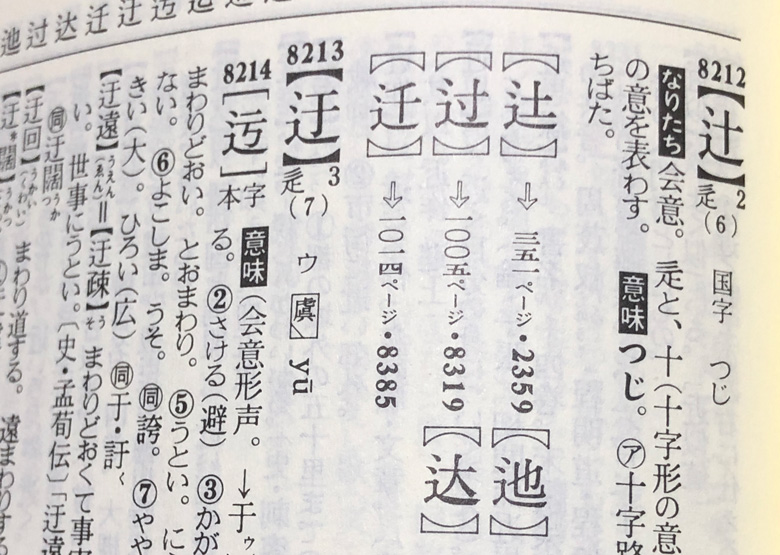 迆过达迁辻迃迄
8212【辻】2 辵(6) 国字 つじ
なりたち 会意。辵と、十(十字形の意
の意を表わす。 意味 つじ。㋐十字路
ちばた。
【辻】⇨三五一ページ・2359【池】
【过】⇨一〇〇五ページ・8319【达】
【迁】⇨一〇一四ページ・8385
8213【迂】3 辵(7) ウ 虞 yū
8214[迃]本字 意味(会意形声。→于ゥ
る。②さける(避)③かが
まわりどおい。とおまわり。⑤うとい。に
ない。⑥よこしま。うそ。同誇。⑦やや
きい(大)。ひろい(広)同于・訏
【迂遠】うえん(ゑん)=【迂疎】そ まわりどおくて事実
い。世事にうとい。〔史・孟荀伝〕「迂遠
同迂闊うかつ
【迂回】うかい(くわい) まわり道する。遠まわりする
【迂*闊】うかつ